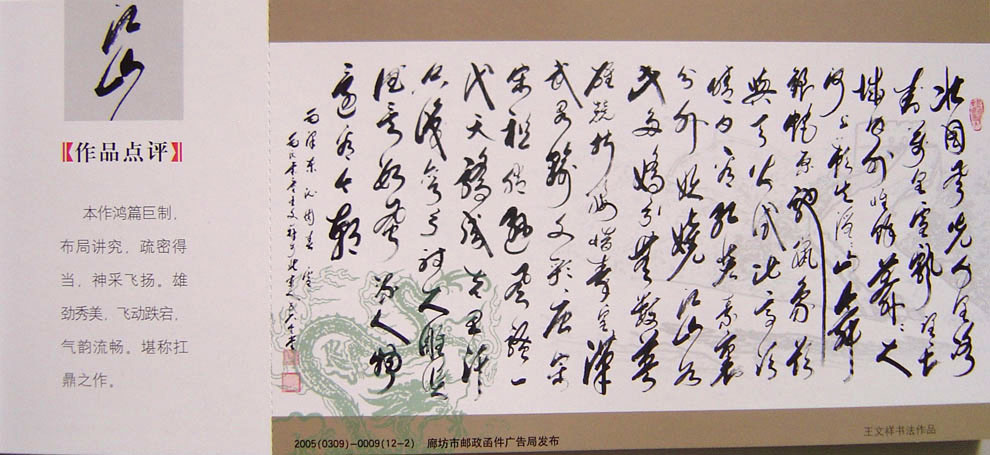 江山
【作品点评】
本作鸿篇巨制，
布局讲究，疏密得
当，神采飞扬。雄
劲秀美，飞动跌宕，
气韵流畅。堪称扛
鼎之作。
北国风光千里冰
封万里雪飘望长
城内外惟馀莽莽大
河上下顿失滔滔山舞
银蛇原驰蜡象欲
与天公试比高须
晴日看红装素裹
分外妖娆江山如
此多娇引无数英
雄竞折腰惜秦皇汉
武略输文采唐宗
宋祖稍逊风骚一
代天骄成吉思汗
只识弯弓射大雕俱
往矣数风流人物
还看今朝
毛泽东沁园春雪
2005(0309)-0009(12-2) 廊坊市邮政函件广告局发布
王文祥书法作品